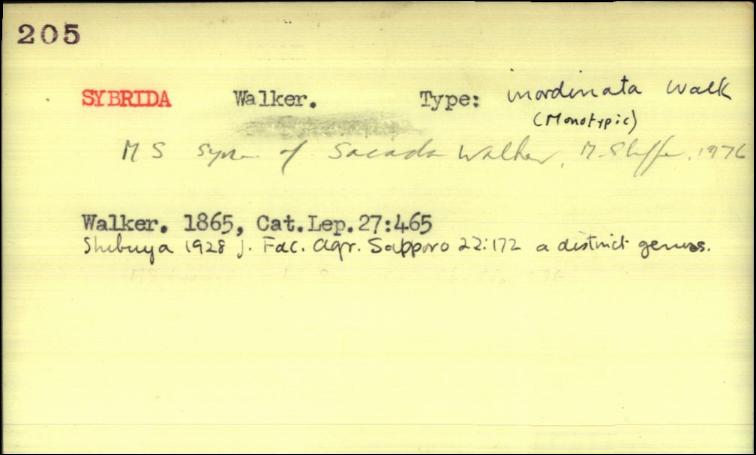 205
SYBRIDA Walker. Type: inordinata Walk
(Monotypic)
MS syn of Sacada Walker, M. Shaffer, 1976
Walker. 1865, Cat.Lep.27:465
Shibuya 1928 J. Fac. Agr. Sapporo 22:172 a distinct genus.